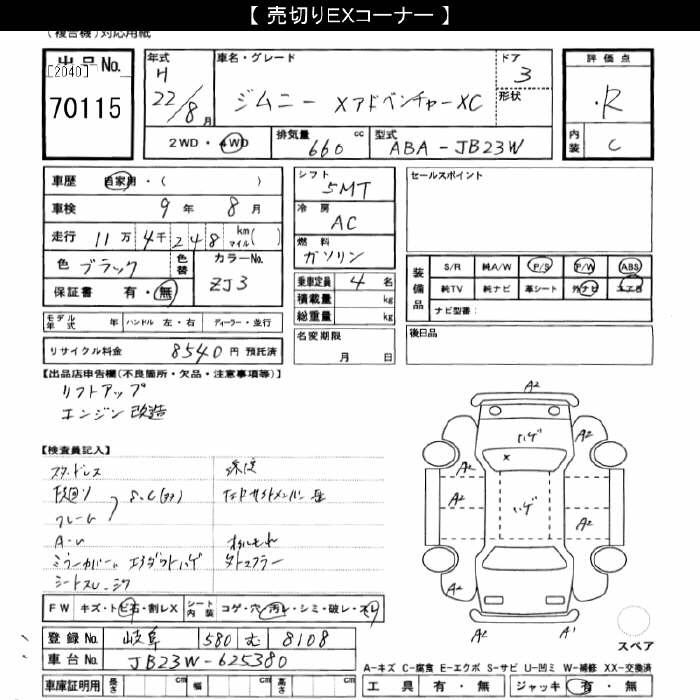 【 売切りEXコーナー 】
(複合機)対応用紙
出品No. [2040] 70115
年式 H 22/8月
車名・グレード ジムニー XアドベンチャーXC
ドア 3
形状
2WD・4WD
排気量 660 cc
型式 ABA-JB23W
評価点 R
内装 C
車歴 自家用・( )
車検 9年 8月
走行 11万4千248 km マイル( )
色 ブラック 色替 カラーNo. ZJ3
保証書 有・無
モデル年式 年 ハンドル 左・右 ディーラー・並行
リサイクル料金 8540円 預託済
シフト 5MT
冷房 AC
燃料 ガソリン
乗車定員 4名
積載量 kg
総重量 kg
名変期限 月 日
セールスポイント
装備品 S/R 純A/W P/S P/W ABS
純TV 純ナビ 革シート 外ナビ エアB
ナビ型番:
後日品
【出品店申告欄(不良箇所・欠品・注意事項等)】
リフトアップ
エンジン改造
【検査員記入】
スタッドレス
下廻り S.C
フレーム
ミラーカバー
FW キズ・トビ石・割レX シート内装 コゲ・穴・汚レ・シミ・破レ・スレ
登録No. 岐阜 580 む 8108
車台No. JB23W-625380
車庫証明用 長さ cm 幅 cm 高さ cm
A2
A2 ハゲ A2
×
A2 ハゲ A2
A2 A2
A2 A1
スペア
A-キズ C-腐食 E-エクボ S-サビ U-凹ミ W-補修 XX-交換済
工具 有・無 ジャッキ 有・無